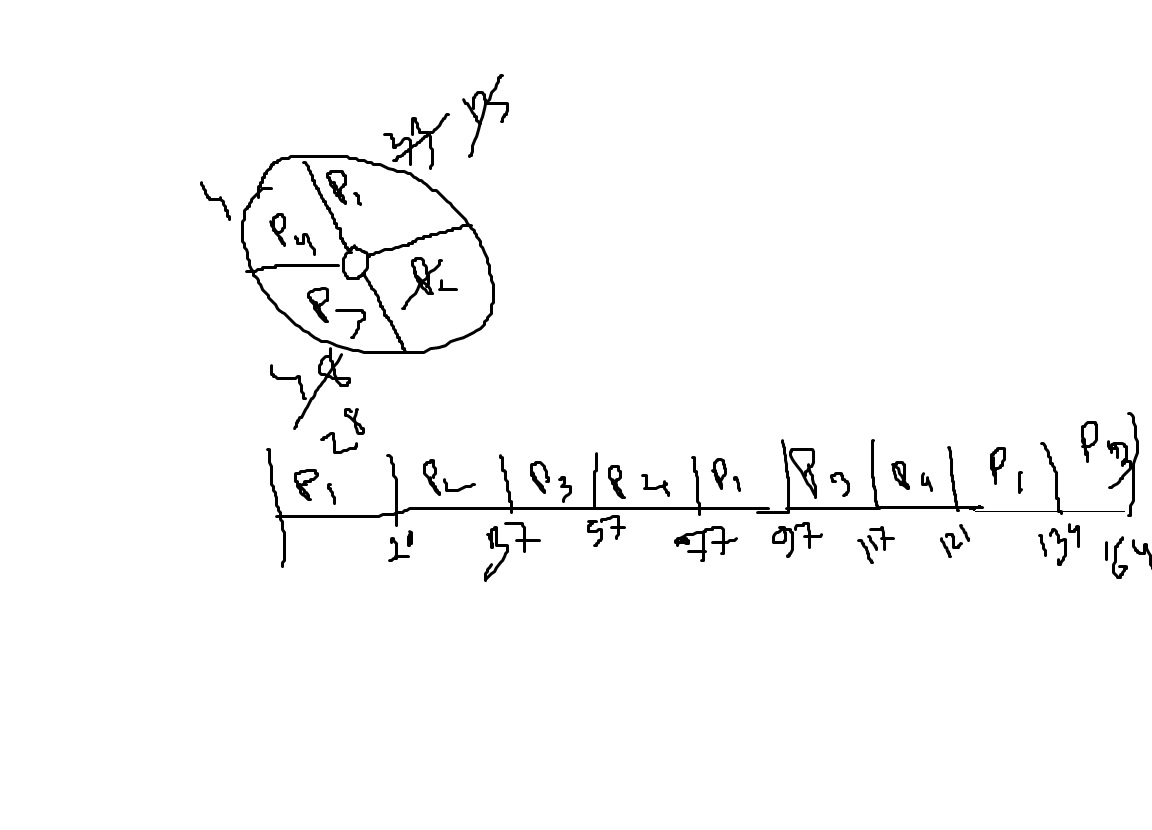 P1
4
P4
P2
P3
28
P1 P2 P3 P4 P1 P3 P4 P1 P3
20 37 57 77 97 117 121 134 164